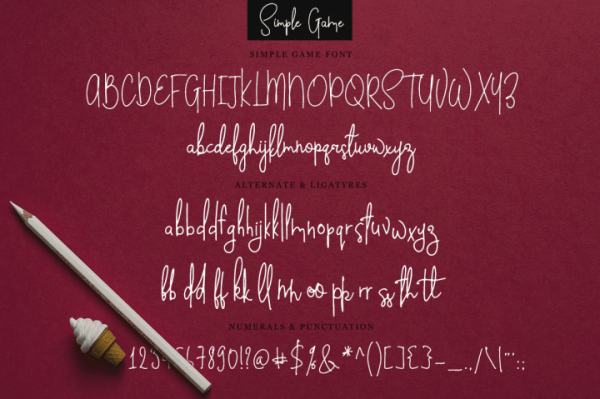 Simple Game
SIMPLE GAME FONT
ABCDEFGHIJKLMNOPQRSTUVWXYZ
abcdefghijklmnopqrstuvwxyz
ALTERNATE & LIGATYRES
abbddfghhijkkllmnopqrstuvwxyz
bb dd ff kk ll nn oo pp rr ss th tt
NUMERALS & PUNCTUATION
1234567890!?@#$%&*^()[]{}-_.,/\|"':;